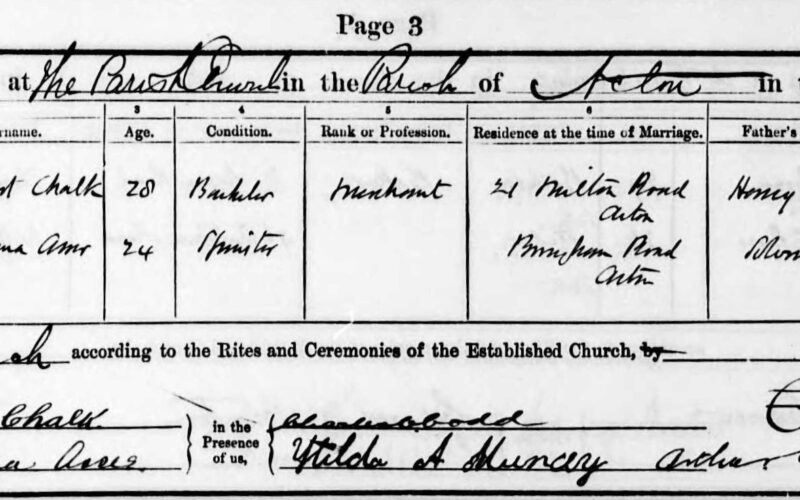 Page 3
at The Parish Church in the Parish of Acton in
3 4 5 6
rname. Age. Condition. Rank or Profession. Residence at the time of Marriage. Father's
Chalk 28 Bachelor Merchant 21 Milton Road Henry
Acton
24 Spinster Brougham Road
Acton
according to the Rites and Ceremonies of the Established Church, by
Chalk in the
Presence
of us, Hilda A Muncey